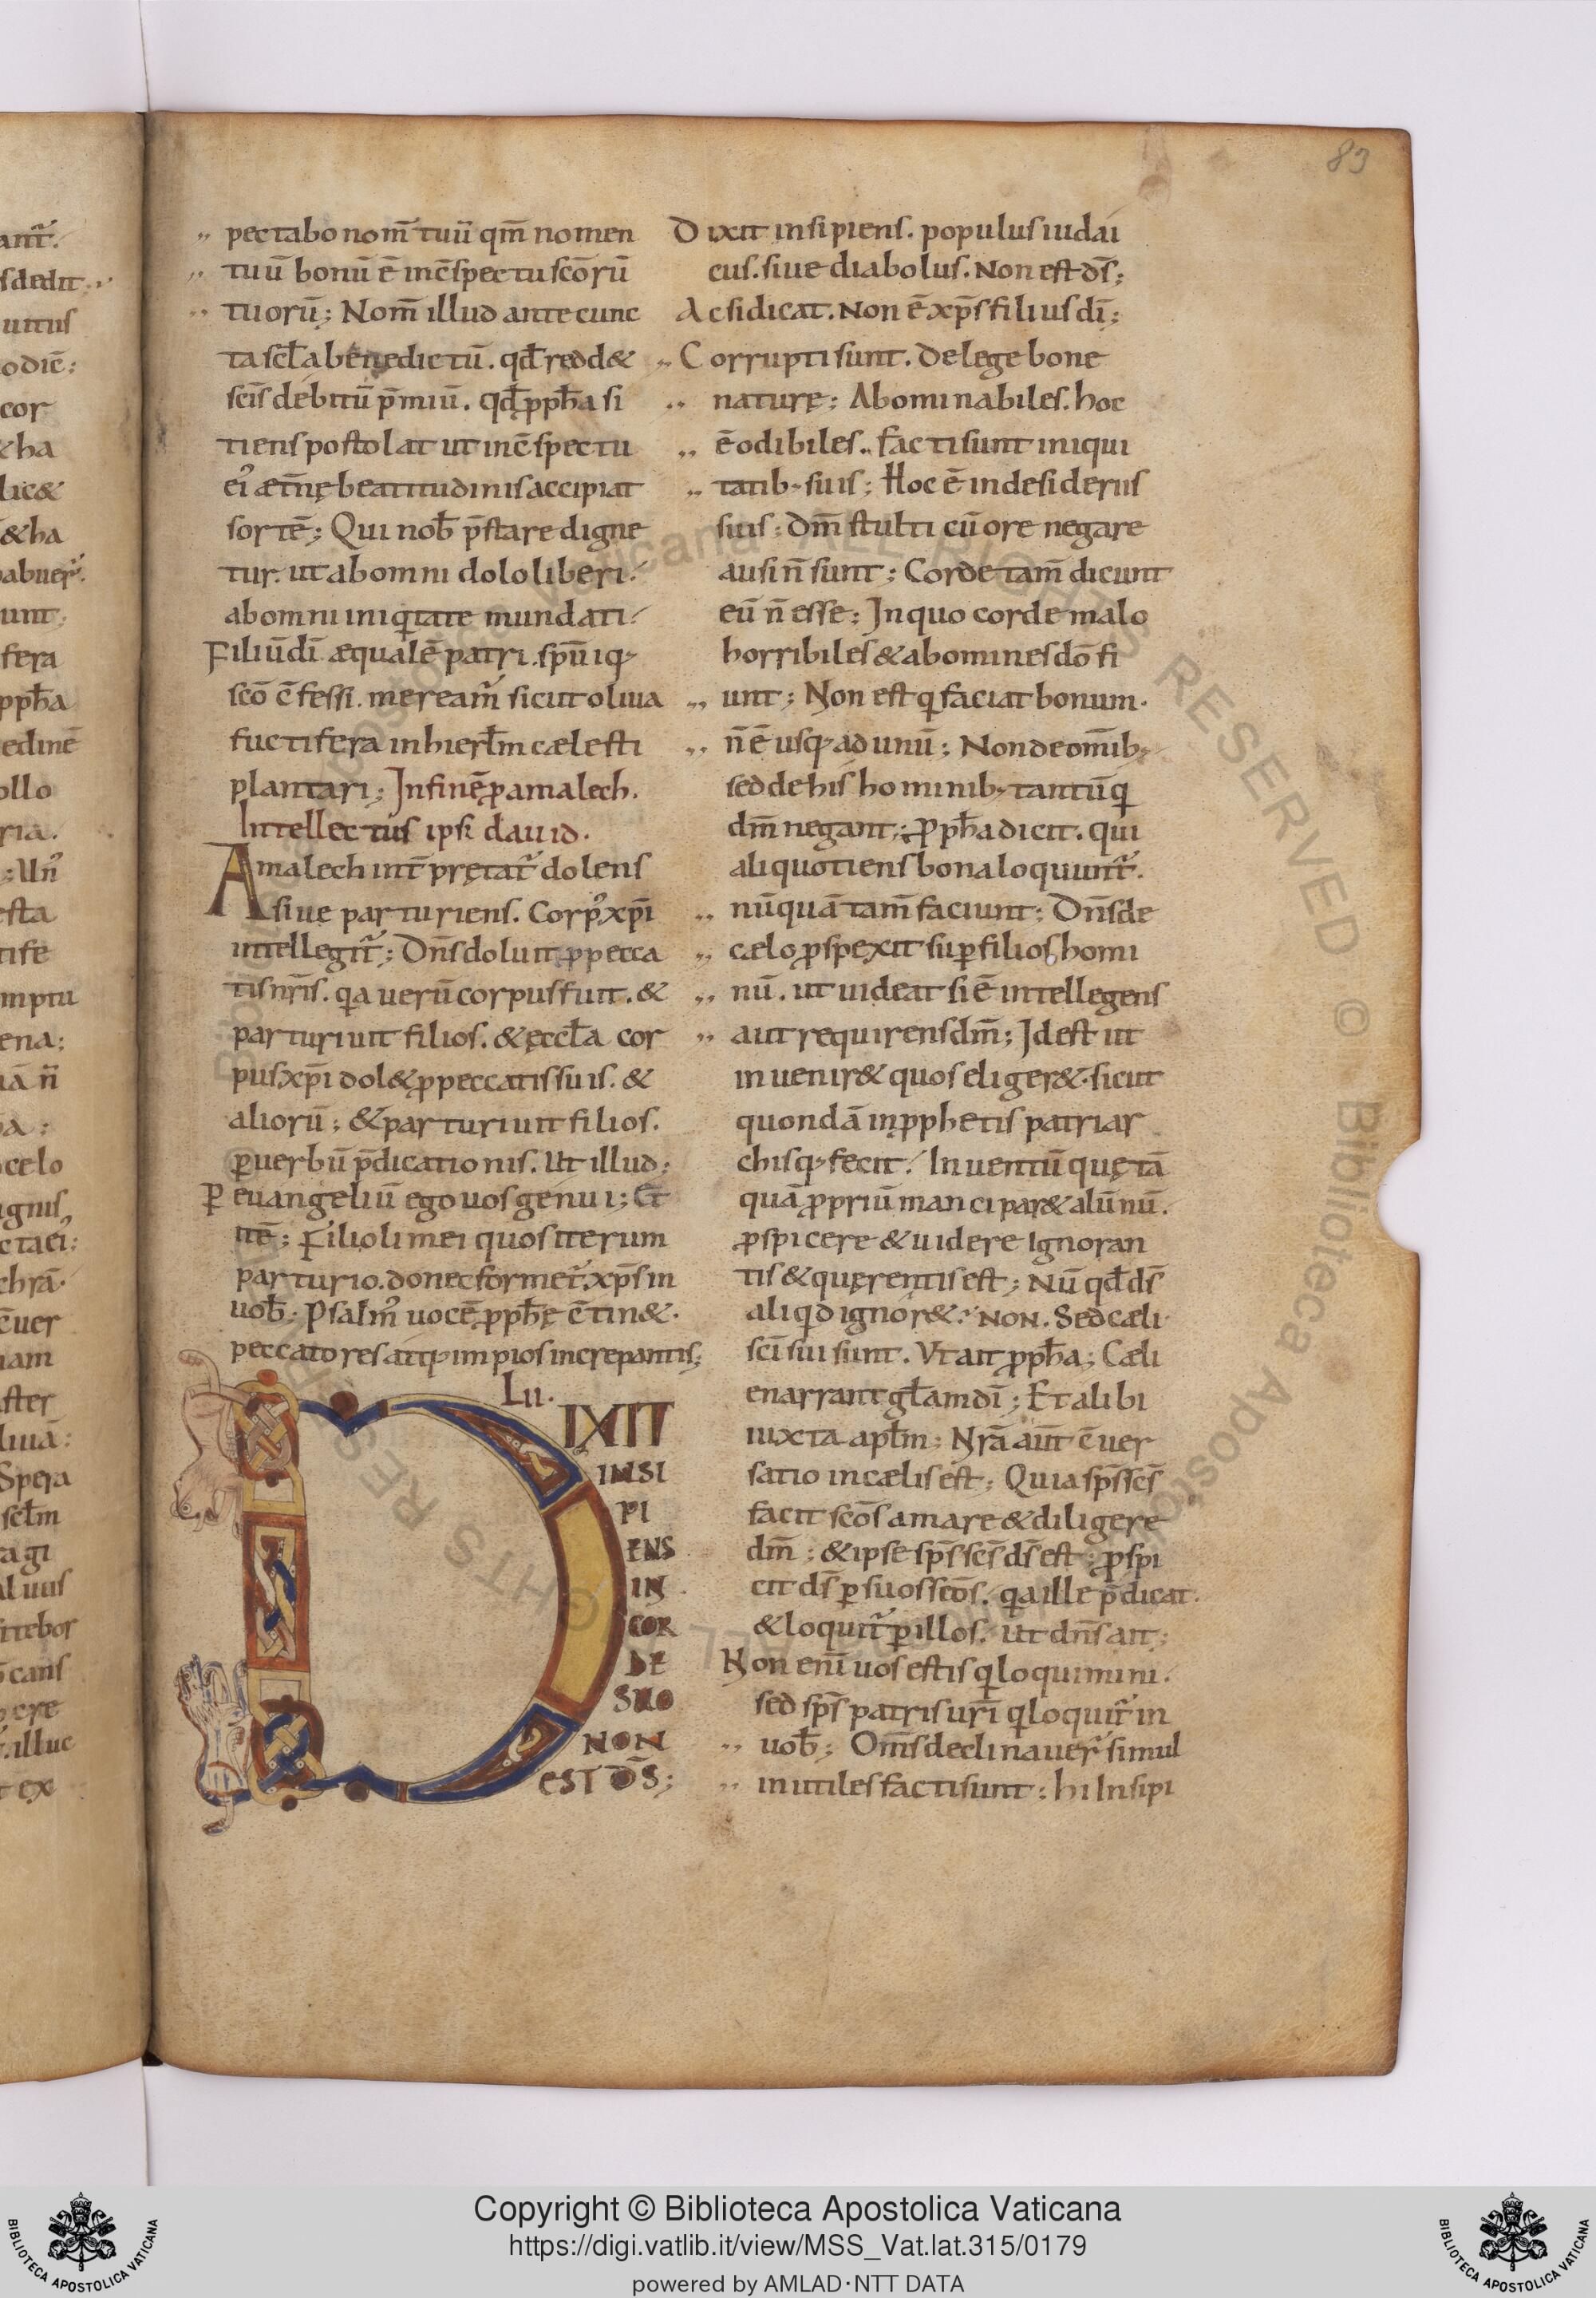 83
pectabo nom̄ tuū qm̄ nomen
tuū bonū ē inc̄spectu scōrū
tuorū; Nom̄ illud ante cunc
ta scl̄a benedictū. qđ redd&
scīs debitū p̄miū. qđ ꝓph̄a si
tiens postolat ut inc̄spectu
ei᾽ æt̄nę beatitudinis accipiat
sortē; Qui nob̄ p̄stare digne
tur. ut ab omni dolo liberi.
ab omni iniqtate mundati.
Filiū dī æqualē patri. spūiq;
scō c̄fessi. meream̄ sicut oliua
fuctifera in hierl̄m cælesti
plantari; Jn finē ꝓ amalech.
Intellectus ipsi dauid.
Amalech int̄prętat᾽ dolens
siue parturiens. Corp᾽ xp̄i
intellegit᾽; Dn̄s doluit ꝓ pecca
tis nr̄is. qa uerū corpus fuit. &
parturiuit filios. & ęccl̄a cor
pus xp̄i dol& ꝓ peccatis suis. &
aliorū; & parturiuit filios.
ꝑ uerbū p̄dicationis. Ut illud;
Ꝑ euangeliū ego uos genui; Et
itē; Filioli mei quos iterum
parturio. donec formet᾽ xp̄s in
uob̄; Psalm᾽ uocē ꝓph̄ę c̄tin&.
peccatores atq; impios increpantis;
Lii.
DIXIT
INSI
PI
ENS
IN
COR
DE
SUO
NON
EST D̄S;
Dixit insipiens. populus iudai
cus. siue diabolus. Non est d̄s;
Ac si dicat. Non ē xp̄s filius dī;
Corrupti sunt. De lege bone
naturę; Abominabiles. hoc
ē odibiles. facti sunt iniqui
tatib; suis; Hoc ē in desideriis
suis; Dm̄ stulti cū ore negare
ausi n̄ sunt; Corde tam̄ dicunt
eū n̄ esse; Jn quo corde malo
horribiles & abomines dō fi
unt; Non est q faciat bonum.
n̄ ē usq; ad unū; Non de omīb;
sed de his hominib; tantū q
dm̄ negant; Ꝓph̄a dicit. qui
aliquotiens bona loquunt᾽.
nūquā tam̄ faciunt; Dn̄s de
cælo ꝓspexit suꝑ filios homi
nū. ut uideat si ē intellegens
aut requirens dm̄; Jd est ut
inuenir& quos eliger&. sicut
quondā in ꝓphetis patriar
chisq; fecit. Inuentū quę tā
quā ꝓpriū mancipar& alūnū.
ꝓspicere & uidere Ignoran
tis & quęrentis est; Nū qđ d̄s
aliqd ignor&. NON. Sed cæli
scī sui sunt. Vt ait ꝓph̄a; Cæli
enarrant gl̄am dī; Et alibi
iuxta apl̄m; Nr̄a aūt c̄uer
satio in cælis est; Quia sp̄s scs̄
facit scōs amare & diligere
dm̄; & ipse sp̄s scs̄ d̄s est; ꝓspi
cit d̄s ꝑ suos scōs. qa ille p̄dicat.
& loquit᾽ ꝑ illos. Ut dn̄s ait;
Non enī uos estis q loquimini.
sed sp̄s patris urī q loquit᾽ in
uob̄; Om̄s declinauer᾽ simul
inutiles facti sunt; hi Insipi
Copyright © Biblioteca Apostolica Vaticana
https://digi.vatlib.it/view/MSS_Vat.lat.315/0179
powered by AMLAD·NTT DATA
BIBLIOTECA APOSTOLICA VATICANA
BIBLIOTECA APOSTOLICA VATICANA